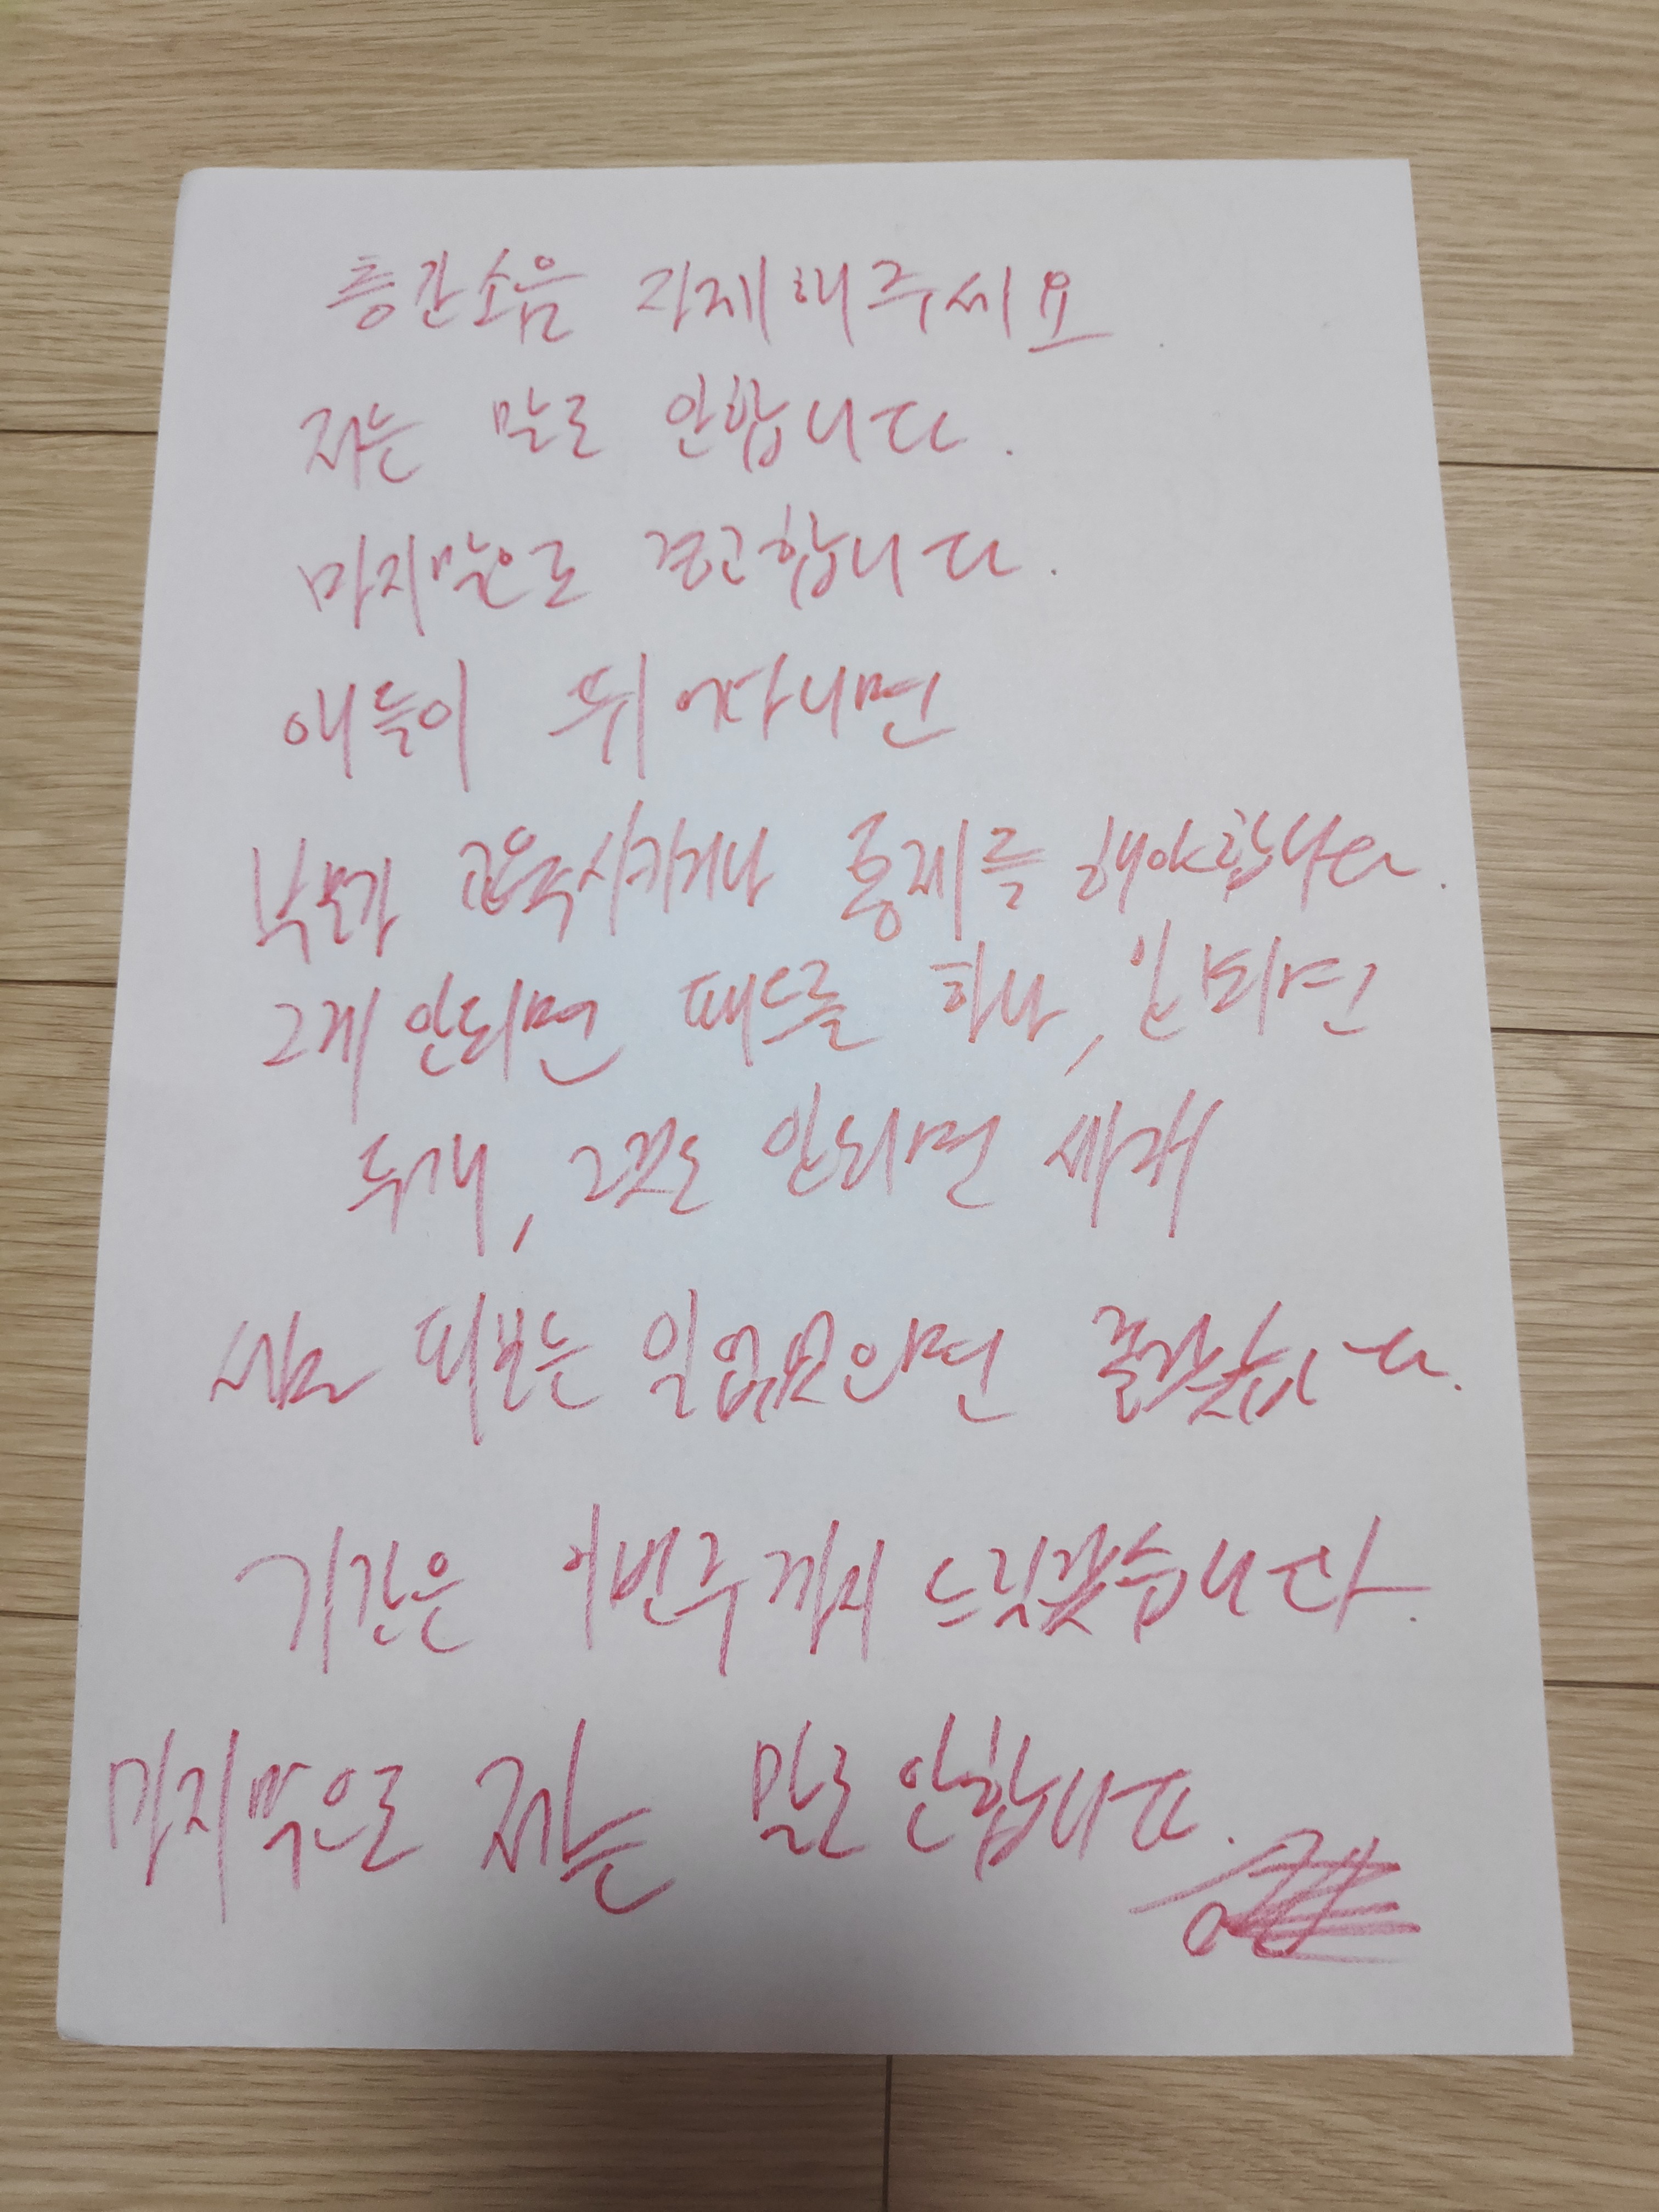 층간소음 자제해주세요
저는 말로 안합니다.
마지막으로 경고합니다.
애들이 뛰어다니면
부모가 교육시키거나 통제를 해야합니다.
그게 안되면 매트를 하나, 안되면
두개, 그것도 안되면 세개
서로 피보는 일 없었으면 좋겠습니다.
기간은 이번주까지 드리겠습니다.
마지막으로 저는 말로 안합니다.